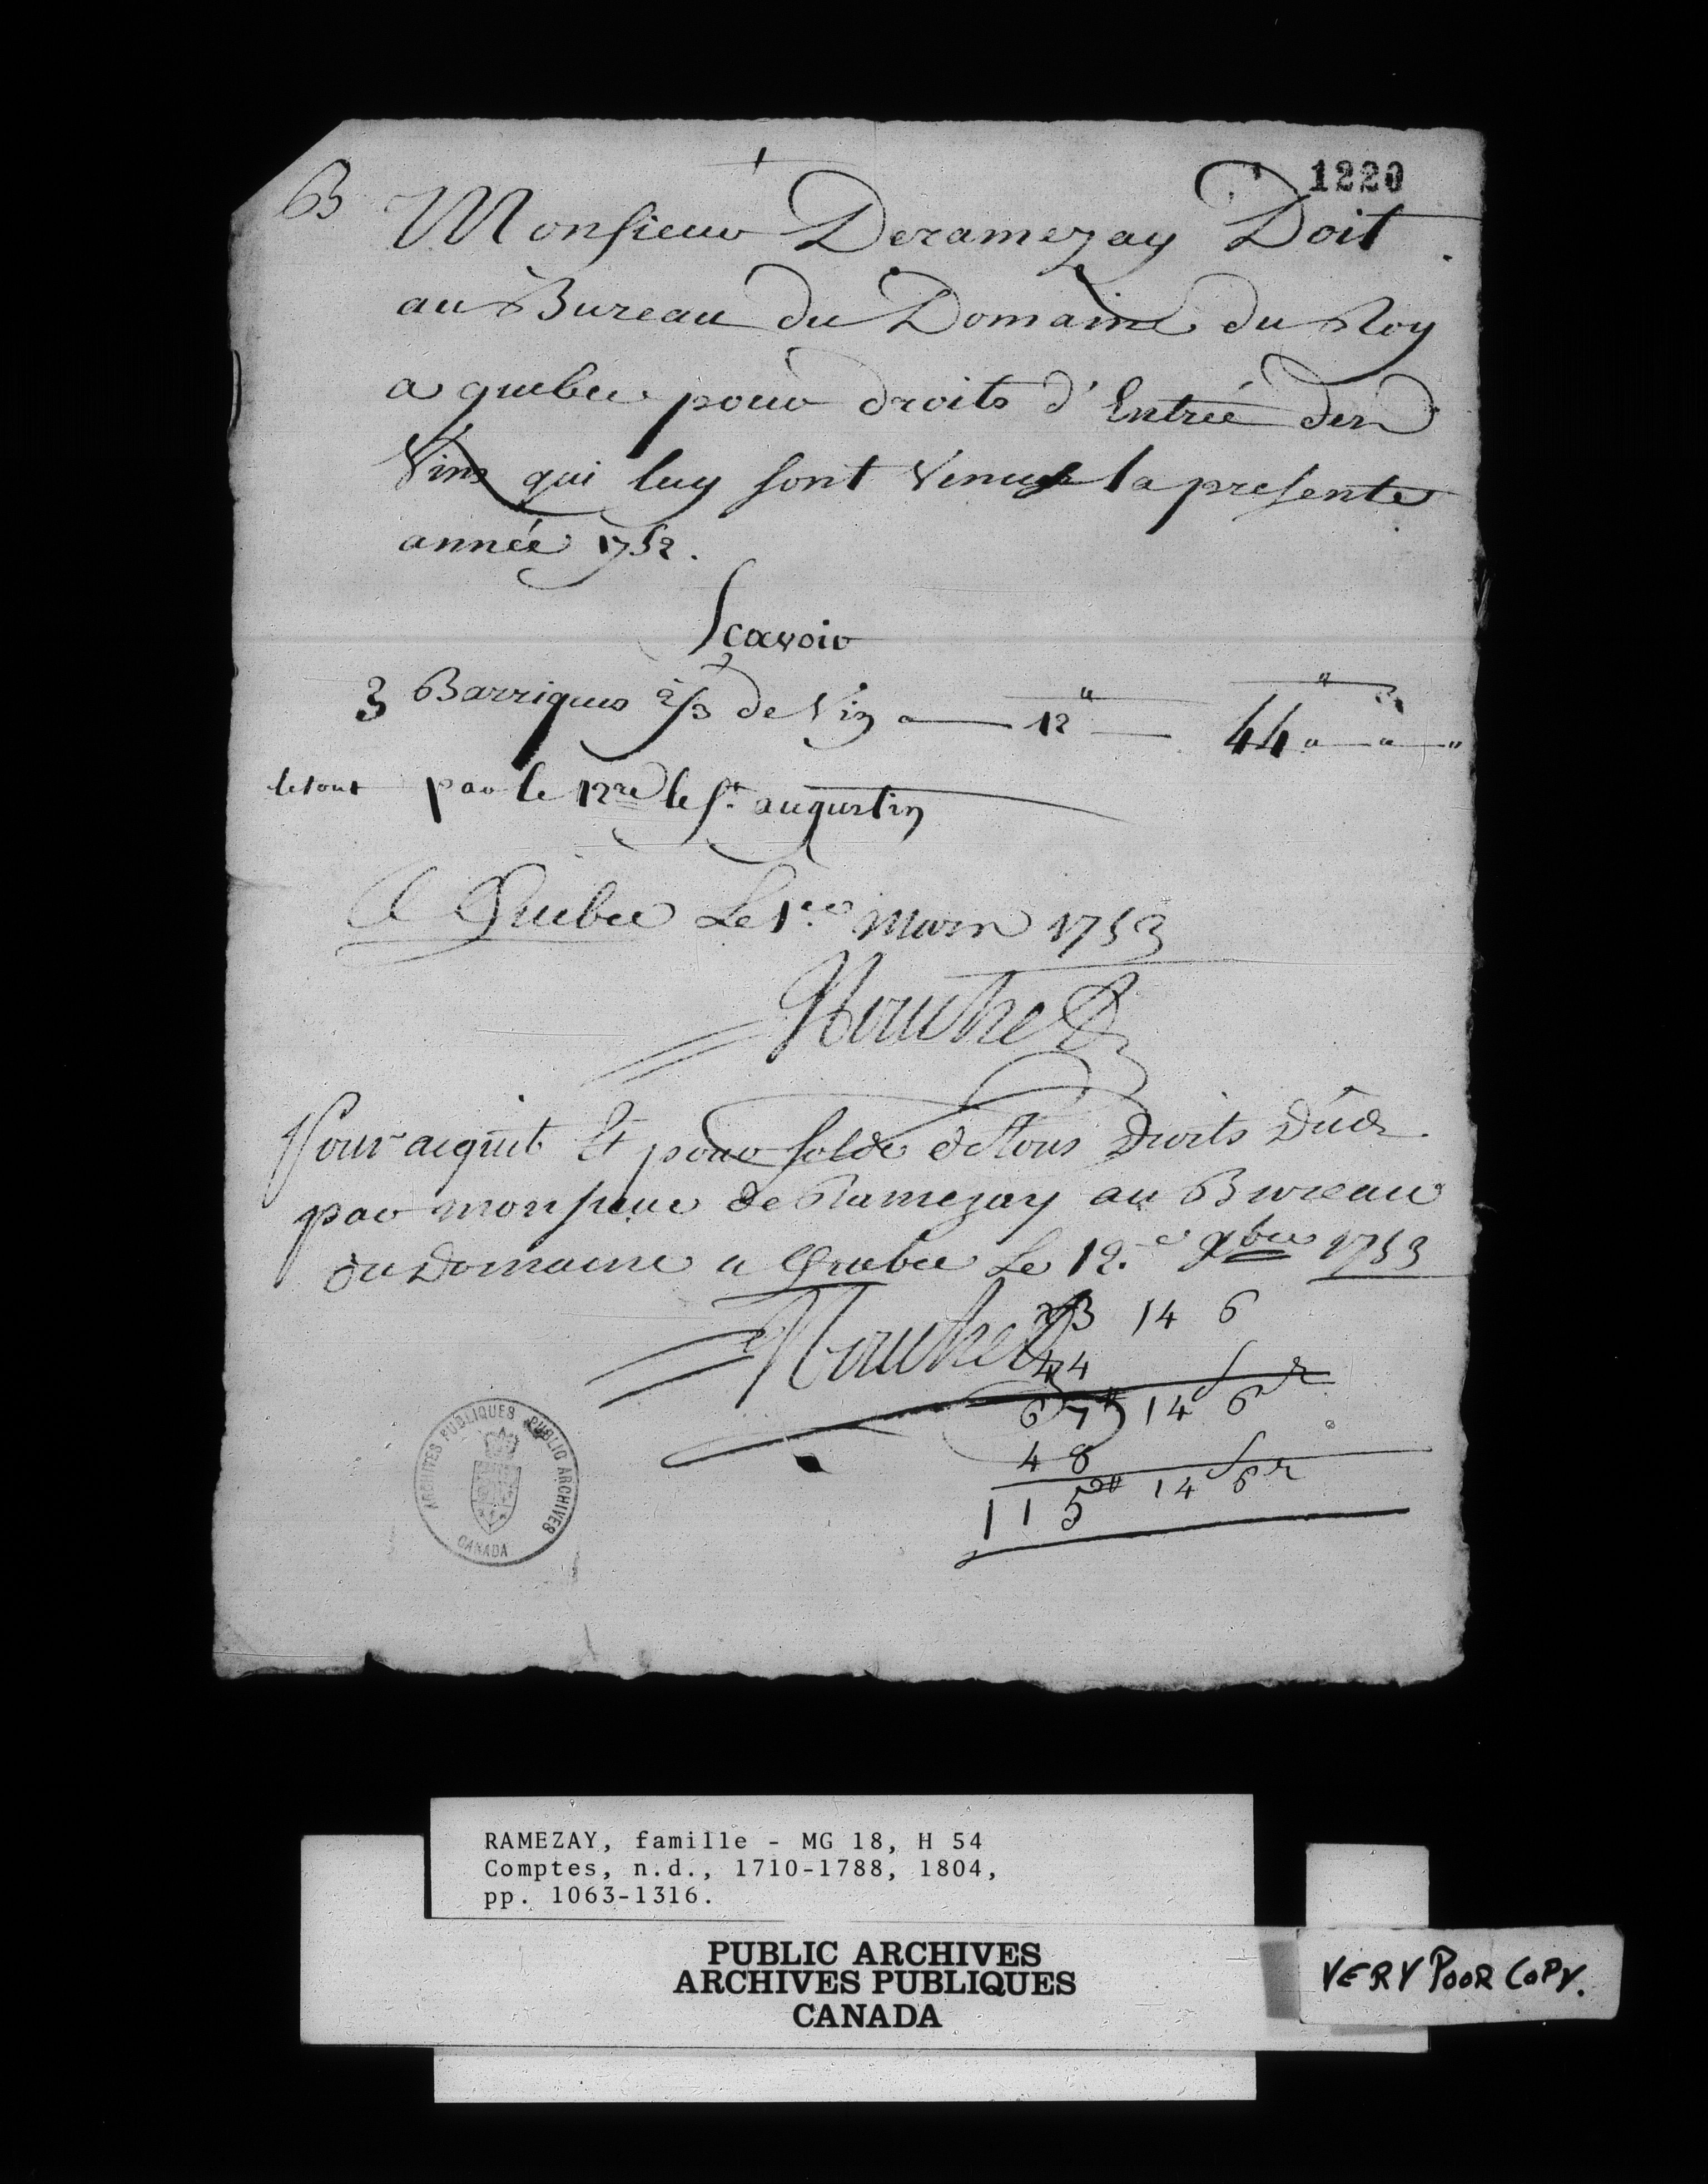 1220
B
Monsieur Deramezay Doit
au Bureau du Domaine du Roy
a quebec pour droits d'Entrée des
Vins qui luy sont Venus la presente
année 1752.
Scavoir
3 Barriques 2/3 de Vin a 12 44 " "
le tout par le N.re le St. augustin
A Quebec Le 1.er Mars 1753
Nouchet
Pour acquit Et pour solde de tous Droits Dûs
par monsieur de Ramezay au Bureau
du Domaine a Quebec Le 12.e 9bre 1753
Nouchet
23 14 6
44
67# 14s 6d
48
115# 14s 6d
ARCHIVES PUBLIQUES PUBLIC ARCHIVES
CANADA
RAMEZAY, famille - MG 18, H 54
Comptes, n.d., 1710-1788, 1804,
pp. 1063-1316.
PUBLIC ARCHIVES
ARCHIVES PUBLIQUES
CANADA
VERY POOR COPY.